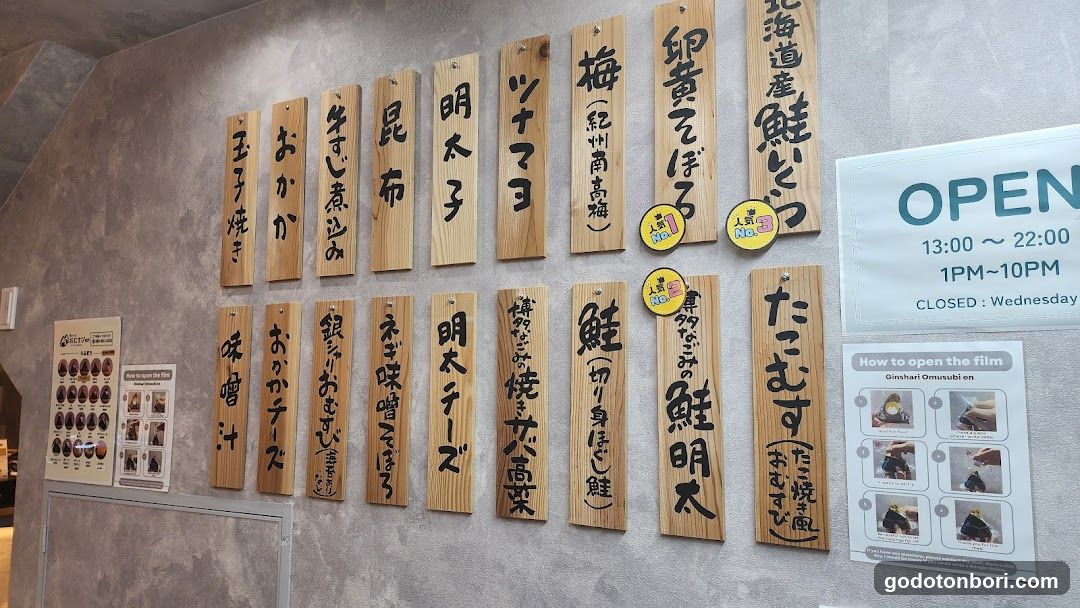 北海道産鮭いくら
人気No.3
卵黄そぼろ
人気No.1
梅(紀州南高梅)
ツナマヨ
明太子
昆布
牛すじ煮込み
おかか
玉子焼き
たこむす(たこ焼き風おむすび)
博多なごみの鮭明太
人気No.2
鮭(切り身ほぐし鮭)
博多なごみの焼きサバ高菜
明太チーズ
ネギ味噌そぼろ
銀シャリおむすび
おかかチーズ
味噌汁
OPEN
13:00 〜 22:00
1PM~10PM
CLOSED : Wednesday
How to open the film
Ginshari Omusubi en
How to open the film
Ginshari Omusubi en
godotonbori.com